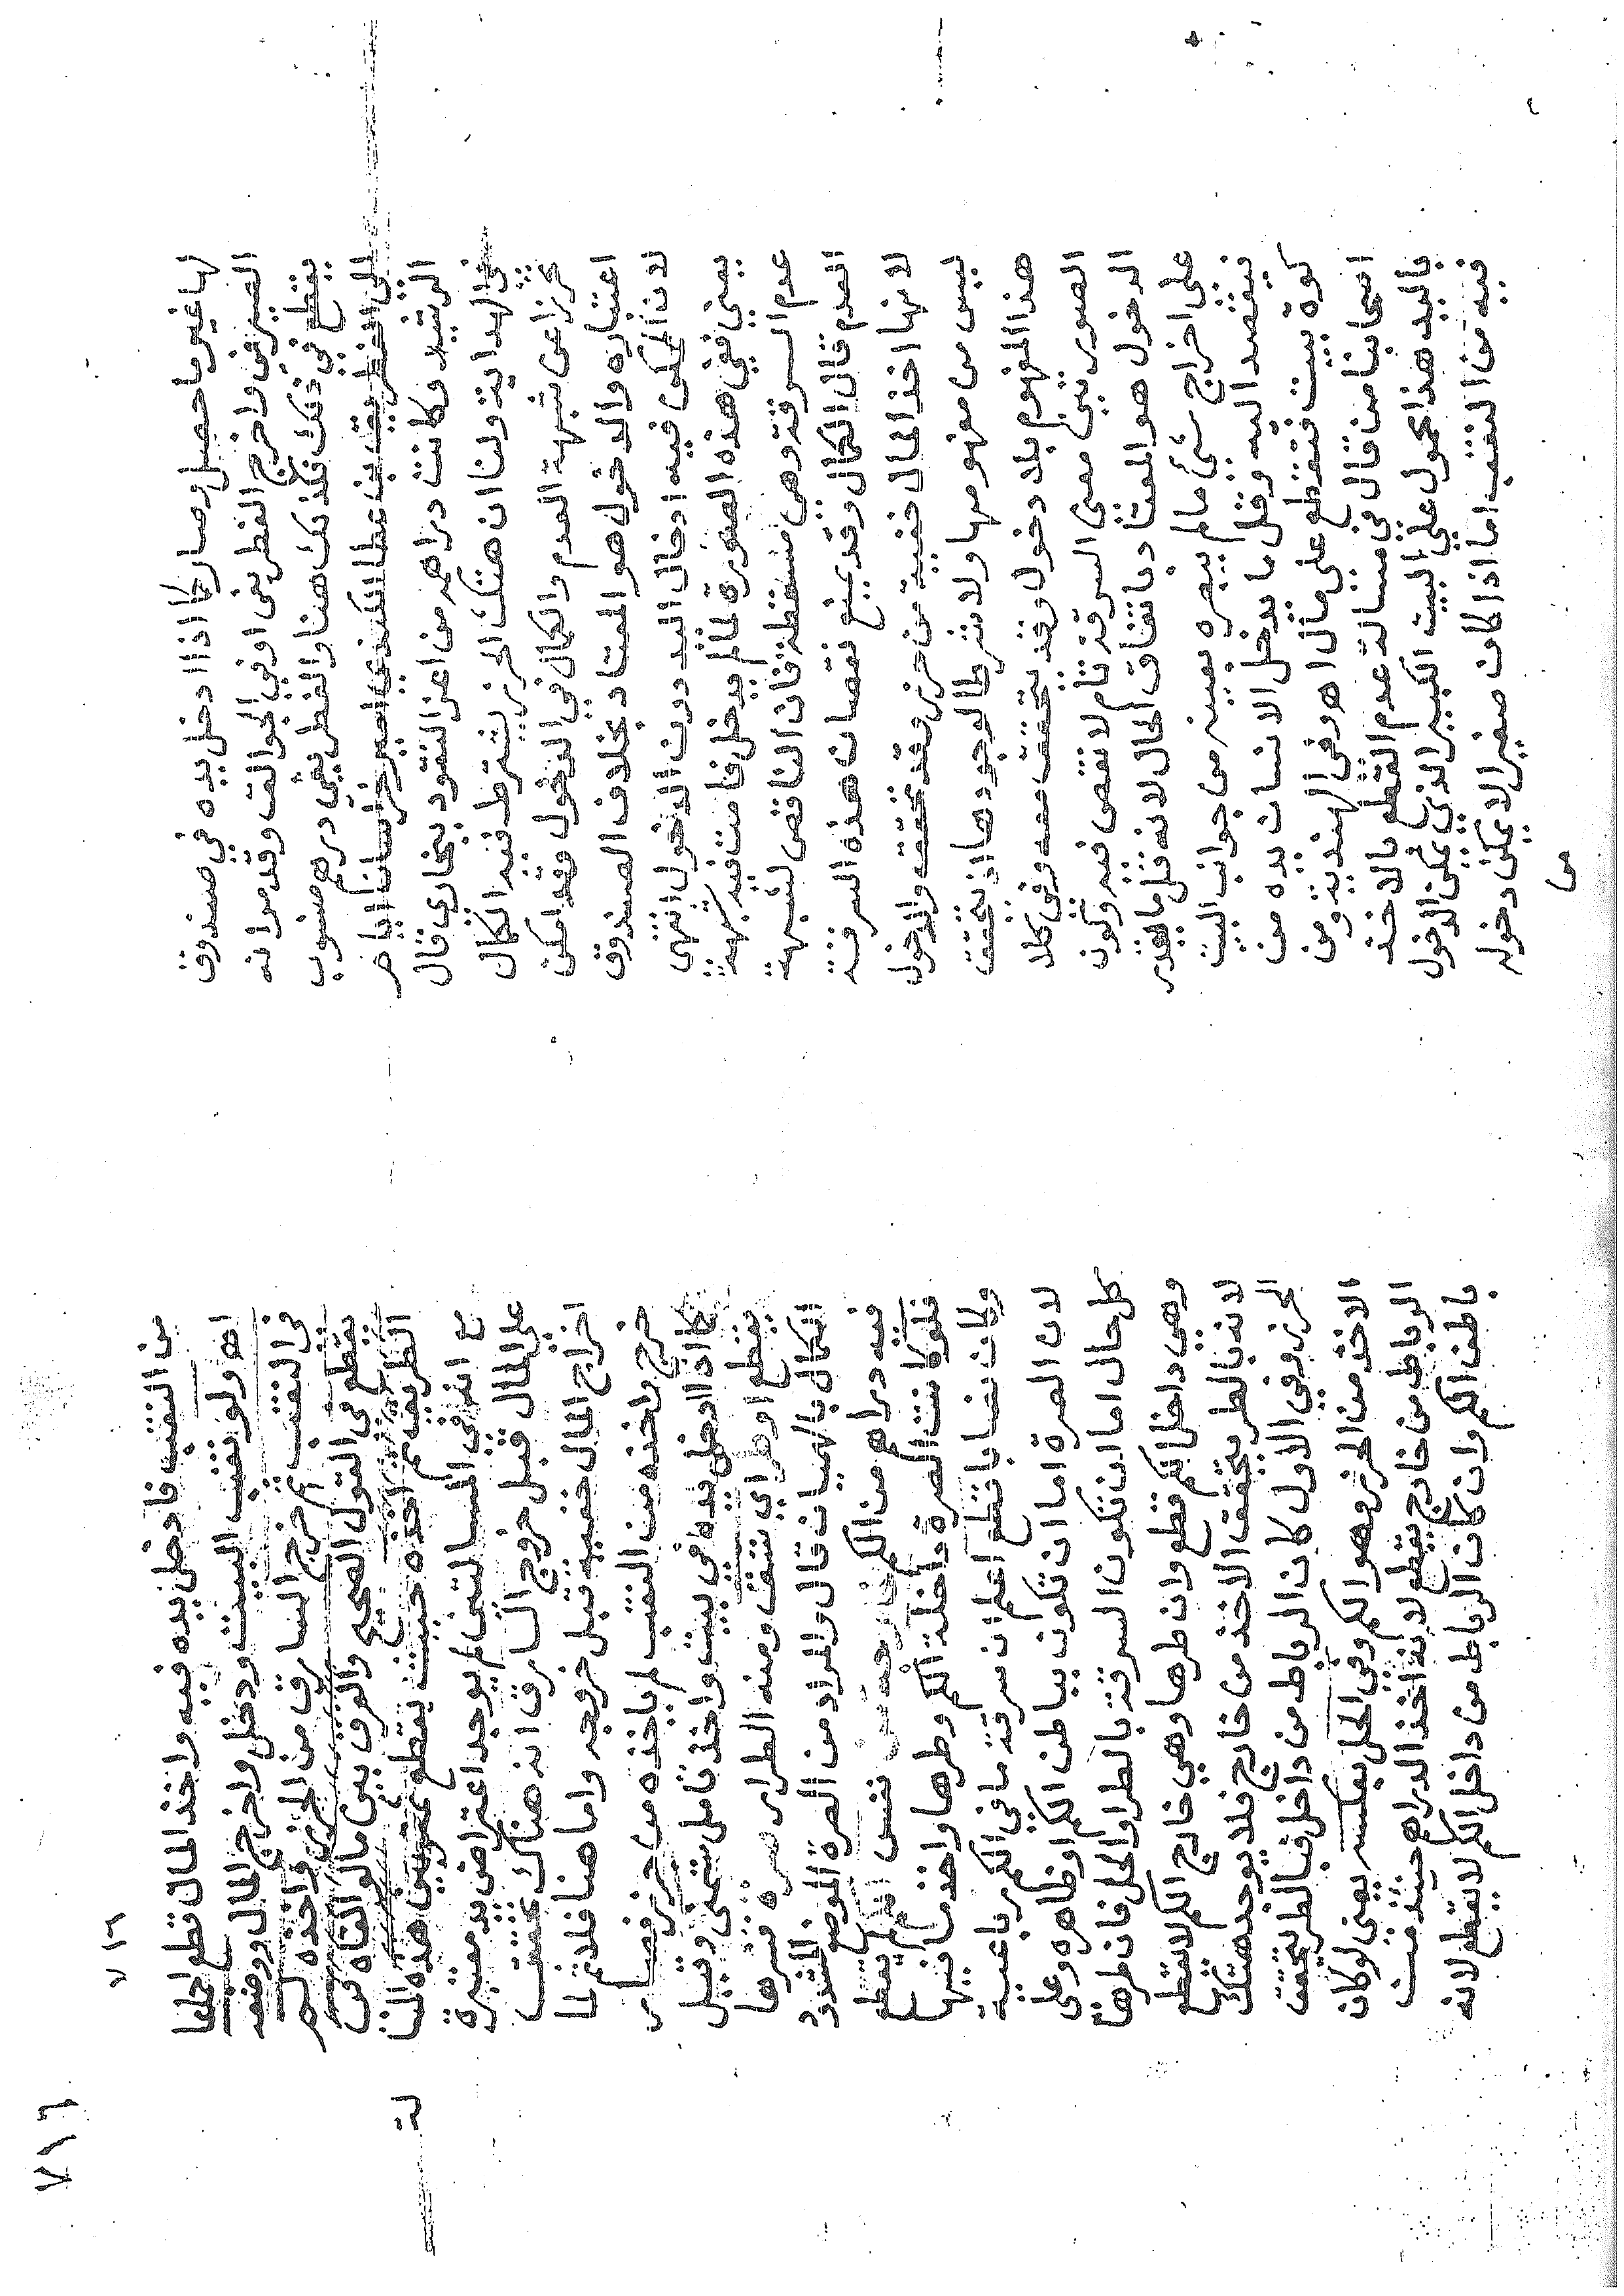 لها غير ما حصل وصار كما اذا ادخل يده في صندوق
الصيرفي واخرج الغطريفي او في الجوالق وقد مر انه
يقطع في ذلك فكذلك هنا والغطريفي درهم منسوب
الى الغطريف بن عطا الكندي امير خراسان ايام
الرشيد وكانت دراهمه من اعز النقود ببخارى قال
في الهداية ولنا ان هتك الحرز يشترط فيه الكمال
تحرزا عن شبهة العدم والكمال في الدخول وقد امكن
اعتباره والدخول هو المعتاد بخلاف الصندوق
لان الممكن فيه ادخال اليد دون الدخول انتهى
يعني ففي هذه الصورة لما لم يدخل قامت فيه شبهة
عدم السرقة وهي مسقطة فان الناقص يشبه
العدم قال الكمال وقد يمنع نقصان هذه السرقة
لانها اخذ المال خفية من حرز وقد تحقق والدخول
ليس من مفهومها ولا شرطا لوجودها اذ يتحقق
هذا المفهوم بلا دخول وقد يتحقق معه وفي كلا
الصورتين معنى السرقة تام لا نقص فيه وكون
الدخول هو المعتاد باتفاق الحال لانه قل ما يقدر
على اخراج شي ما لم يبصره بعينه من جوانب البيت
فيقصد اليه وقل ما يدخل الانسان يده من
كوة بيت فتقع على مال اهـ وفي الهندية ومن
اصحابنا من قال في مسالة عدم القطع بالاخذ
باليد هذا محمول على البيت الكبير الذي يمكن الدخول
فيه من النقب اما اذا كان صغيرا لا يمكن دخوله
من
٧١٦
٧١٦
من النقب فادخل يده فيه واخذ المال قطع اجماعا
اهـ ولو نقب البيت ودخل واخرج المال ووضعه
في النقب ثم خرج السارق من الحرز واخذه لم
يقطع في القول الصحيح والفرق بين ما لو القاه في
الطريق ثم اخذه حيث يقطع وبين هذه المسا
لة
مع انه في المسالتين لم يوجد اعتراض يد معتبرة
على المال قبل خروج السارق انه هناك تحققت
اخراج المال خفية قبل خروجه واما هنا فلا لما
خرج واخذه من النقب لم ياخذه من حرز فصار
كما اذا ادخل يده في بيت واخذ تامل شمني وقيل
يقطع او طر اي شق ومنه الطرار صرة فسرها
الكمال بالهميان قال والمراد من الصرة الموضع المشدود
فيه دراهم من الكم خارجة من نفس الكم لم يقطع
فلو كانت الصرة داخلة الكم وطرها واخذ ما فيها
وكان نصابا قطع اعلم ان سرقة ما في الكم باعتبة
لان الصرة اما ان تكون بباطن الكم او ظاهره وعلى
كل حال اما ان تكون السرقة بالطر او الحل فان طرها
وهي داخل الكم قطع وان طرها وهي خارج الكم لا يقطع
لانه بالطر يتحقق الاخذ من خارج فلا يوجد هتك
الحرز وفي الاول كان الرباط من داخل فبالطر يتحقق
الاخذ من الحرز وهو الكم وفي الحل بعكسه يعني لو كان
الرباط من خارج يقطع لانه اخذ الدراهم حينئذ من
باطن الكم وان كان الرباط من داخل الكم لا يقطع لانه